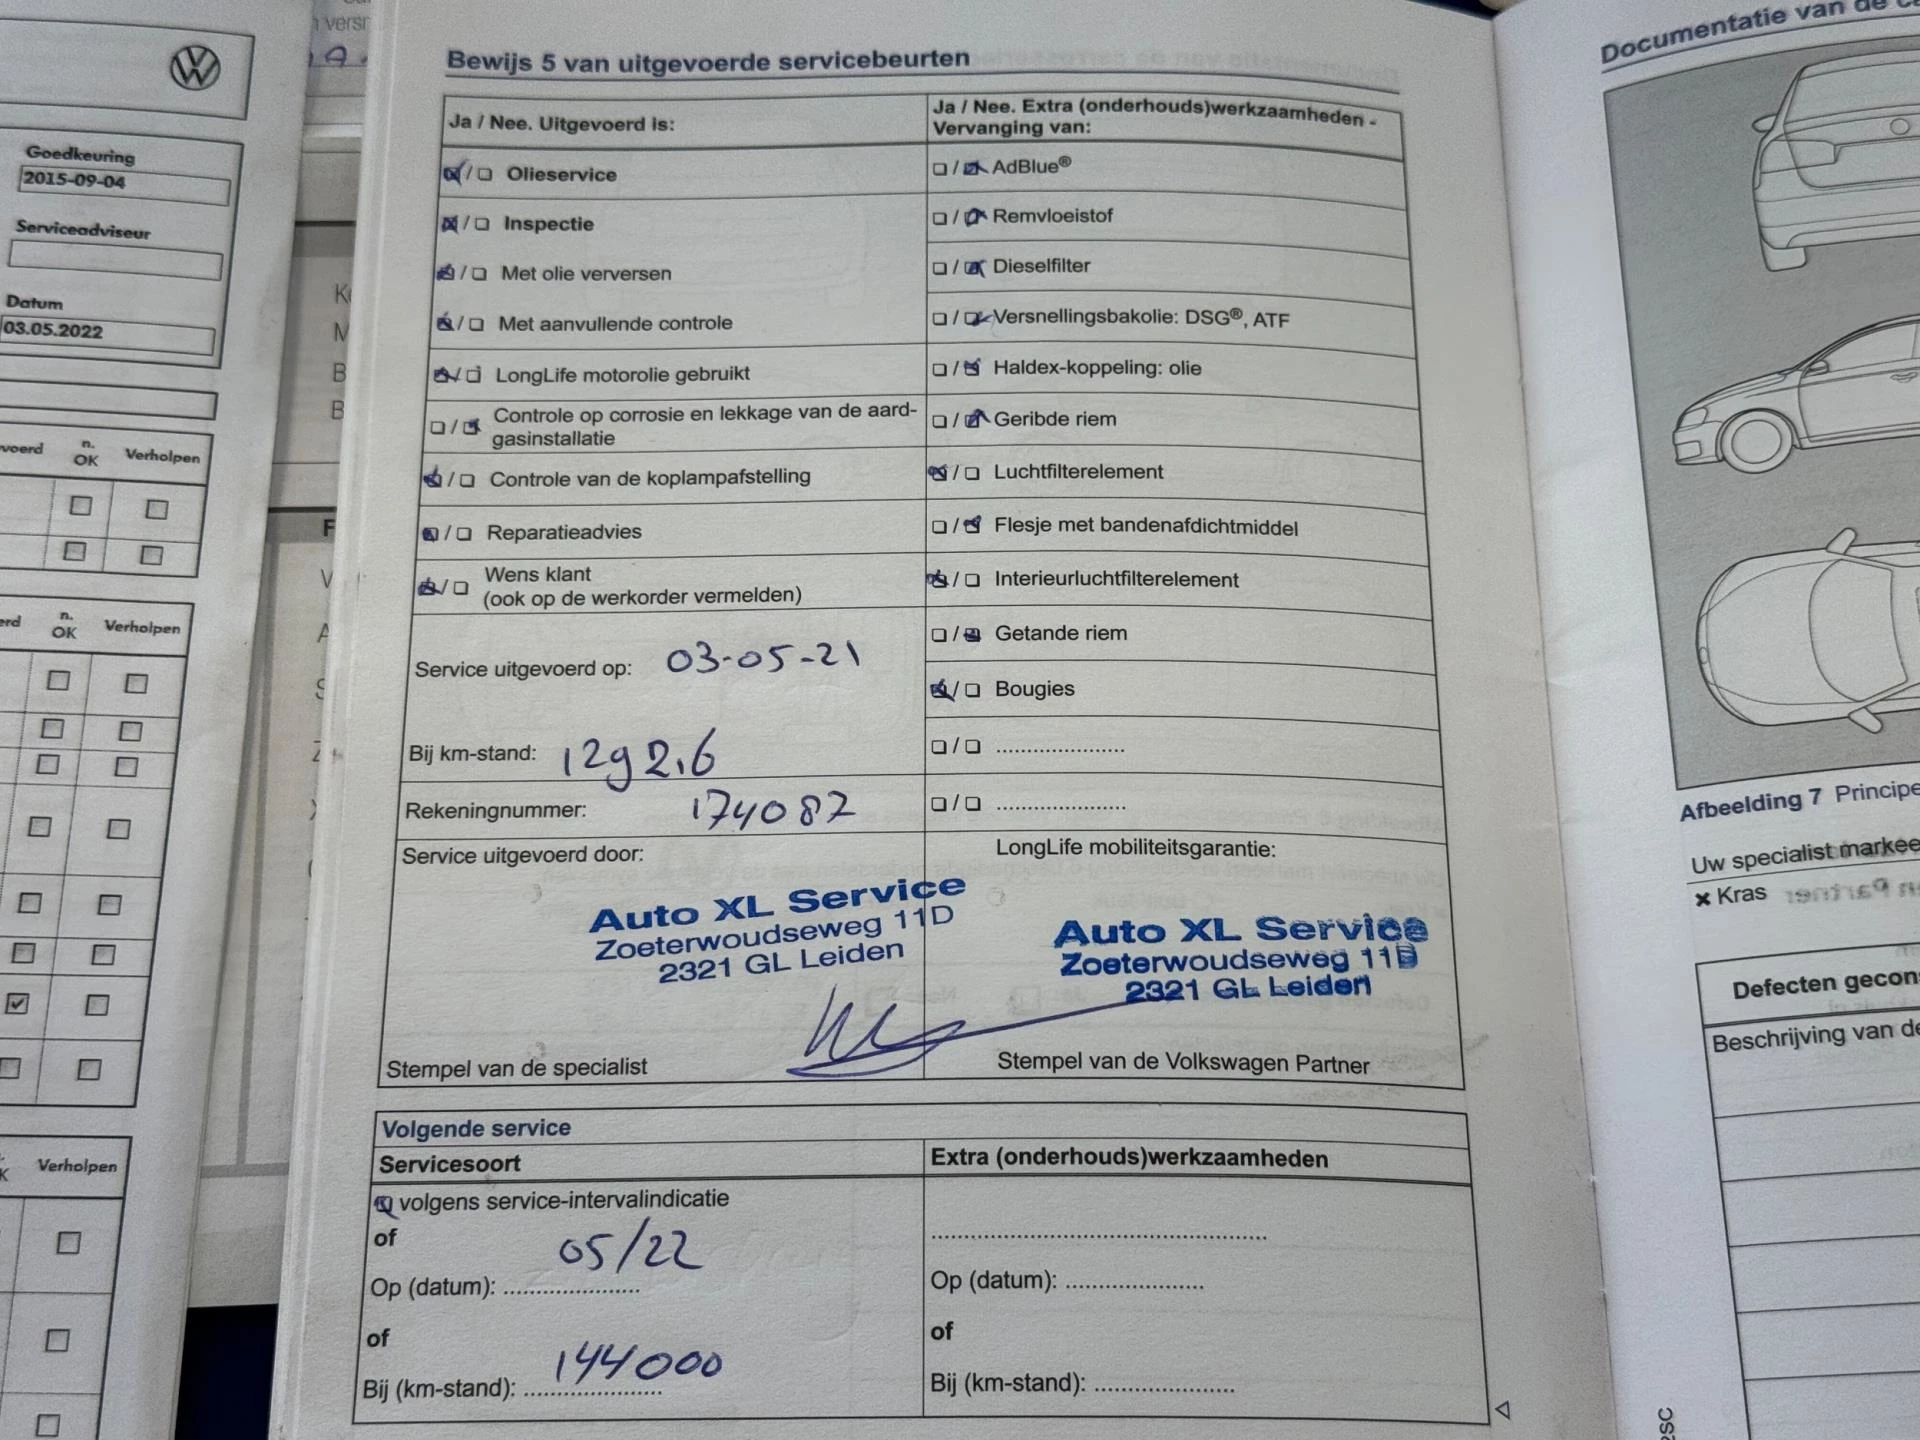 Goedkeuring
2015-09-04
Serviceadviseur
Datum
03.05.2022
n.
OK
Verholpen
n.
OK
Verholpen
Verholpen
Bewijs 5 van uitgevoerde servicebeurten
Ja / Nee. Uitgevoerd is:
Olieservice
Inspectie
Met olie verversen
Met aanvullende controle
LongLife motorolie gebruikt
Controle op corrosie en lekkage van de aard-
gasinstallatie
Controle van de koplampafstelling
Reparatieadvies
Wens klant
(ook op de werkorder vermelden)
Service uitgevoerd op: 03-05-21
Bij km-stand: 1292,6
Rekeningnummer: 174087
Service uitgevoerd door:
Auto XL Service
Zoeterwoudseweg 11D
2321 GL Leiden
Stempel van de specialist
Ja / Nee. Extra (onderhouds)werkzaamheden -
Vervanging van:
AdBlue®
Remvloeistof
Dieselfilter
Versnellingsbakolie: DSG®, ATF
Haldex-koppeling: olie
Geribde riem
Luchtfilterelement
Flesje met bandenafdichtmiddel
Interieurluchtfilterelement
Getande riem
Bougies
LongLife mobiliteitsgarantie:
Auto XL Service
Zoeterwoudseweg 11D
2321 GL Leiden
Stempel van de Volkswagen Partner
Volgende service
Servicesoort
volgens service-intervalindicatie
of
05/22
Op (datum):
of
144000
Bij (km-stand):
Extra (onderhouds)werkzaamheden
Op (datum):
of
Bij (km-stand):
Documentatie van de
Afbeelding 7 Principe
Uw specialist markee
Kras
Defecten gecon
Beschrijving van de